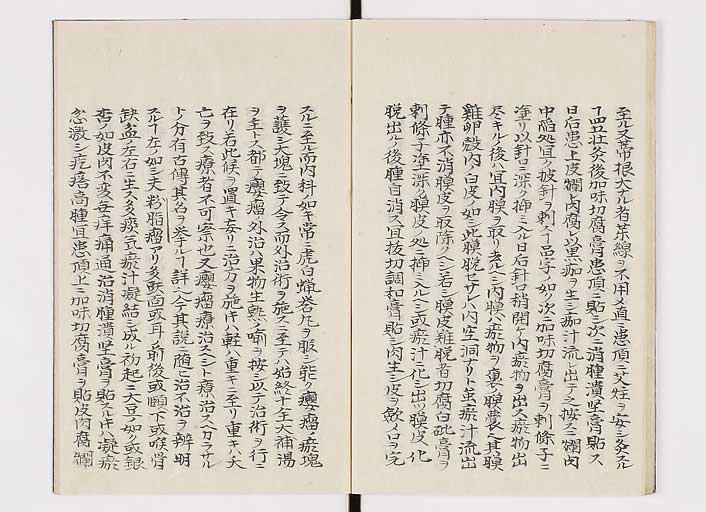 至ル又蒂根大ナル者茶線ヲ不用メ直ニ患頂ニ艾炷ヲ安シ灸スル
丁四五壮灸後加味切腐膏患頂ニ貼シ次ニ消腫潰堅膏貼ス
日后患上皮爛肉腐レ以黒痂ヲ生シ痂汁流レ出テヲ按スニ爛肉
中陥処宜ク披針ヲ刺ス丁吊子ノ如ク次加味切腐膏ヲ刺條子ニ
塗リ以針口ニ深ク挿ミ入ル日后針口稍開ケ内瘀物ヲ出ス瘀物出
尽キル後ハ宜内膜ヲ取リ去ルヘシ内膜ハ瘀物ヲ裹ム膿嚢ヘ其膜
雞卵殻内ノ白皮ノ如シ此膜脱セサレハ内空洞ナリト虽瘀汁流出
テ腫亦不消膿皮ヲ取除クヘシ若シ膜皮難脱者切腐白砒膏ヲ
刺條子塗深ク膜皮ノ処ニ挿ミ入ルヘシ或瘀汁ニ化シ出ツ膜皮ハ化
脱出ル後腫自消ス宜抜切調和膏貼シ肉生シ皮ヲ斂メ口ヲ完
スルニ至ル而内科如キ常ニ虎白蝉誉丸ヲ服シ能ク癭瘤ノ瘀塊
ヲ護シ大塊ニ致テ令ス而外治術ヲ施スニ至テハ始終十全大補湯
ヲ主トス都テ癭瘤ノ外治ハ果物生熟ノ喩ヲ按シ以テ治術ヲ行ニ
在リ若此候ヲ置キ妄リニ治方ヲ施キハ軽ハ重キニ至リ重キハ夭
亡ヲ致ス療者不可不察也又癭瘤療治スヘシト療治スヘカラサル
ト分有古傳其名ヲ挙ルノミ詳ヘテ其説ニ随ヒ治不治ヲ辨明
スル丁在ノ如シ夫粉脂瘤アリ多酥面或耳ノ前後或頤下或喉骨
缺盆左右ニ生ス多痰氣瘀汁凝結シ成ル初起ニ大豆ノ如ク或銀
杏ノ如皮肉不変毎痒痛通治消腫潰堅膏ヲ貼スルキハ凝瘀
忽激シ疙瘩高腫宜患頂上ニ加味切腐膏ヲ貼皮肉腐爛